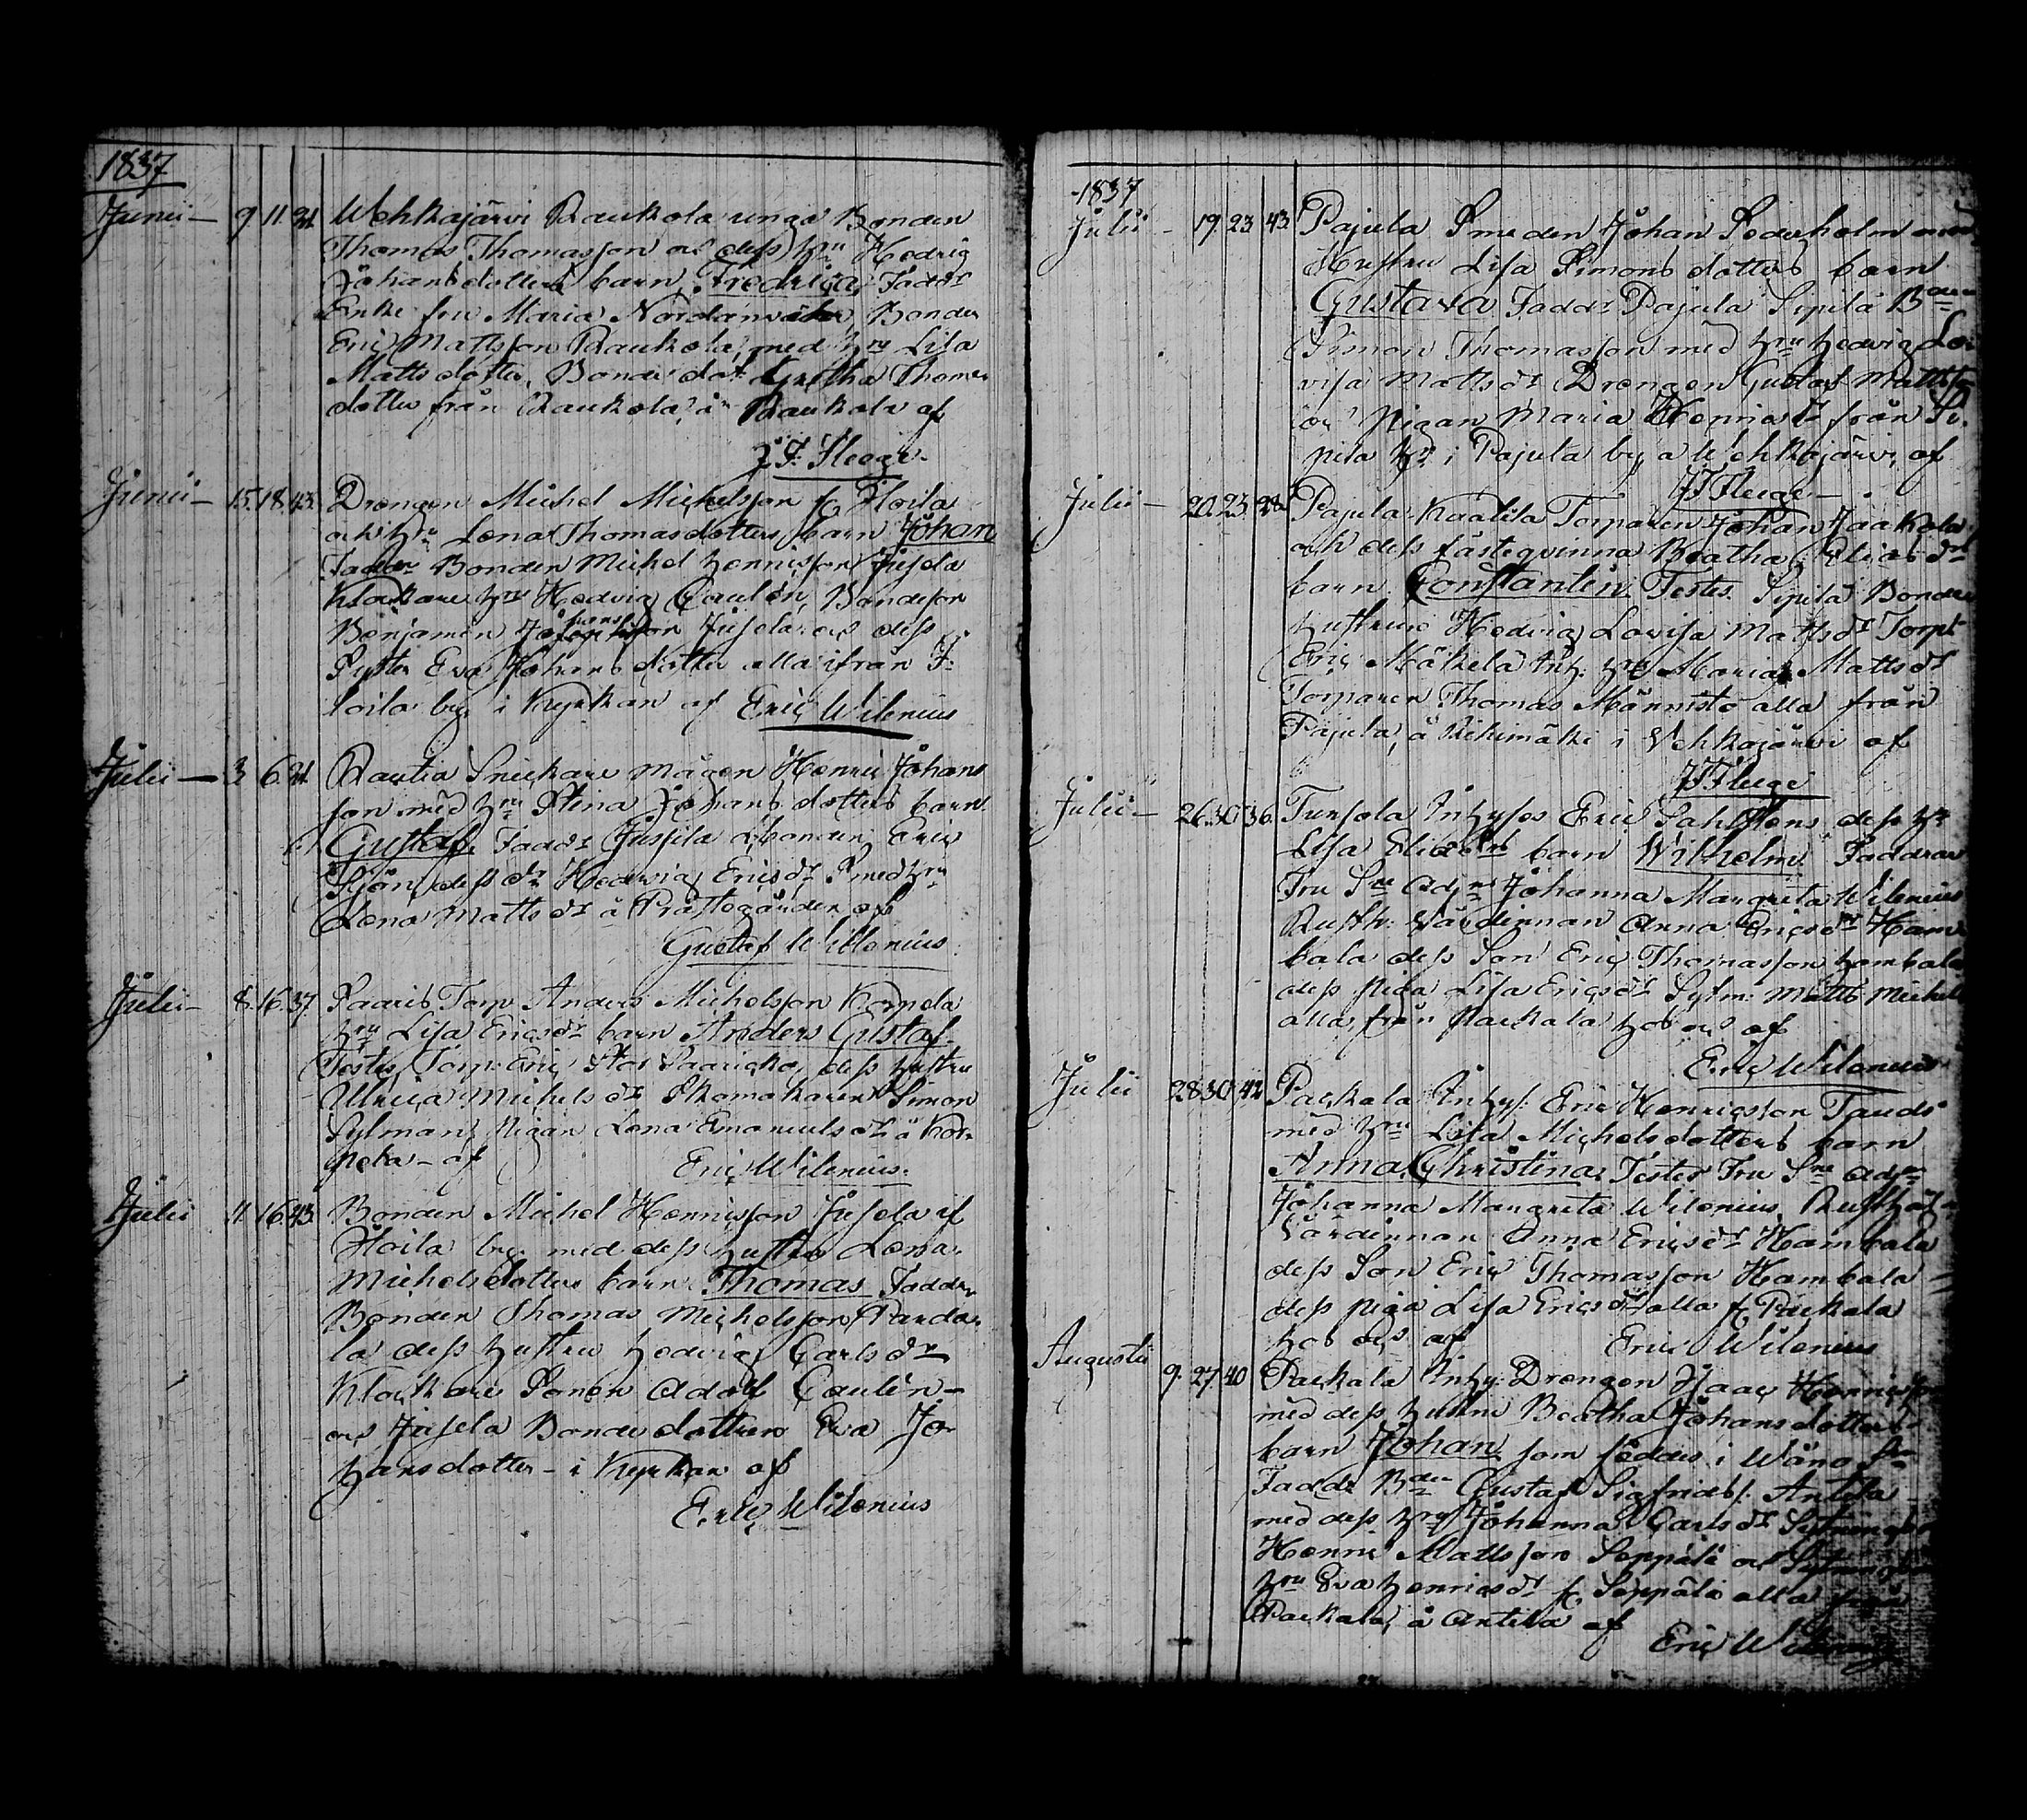 1837
Junii - 9. 11. 21. Wehkajärvi Raukola unga Bonden
Thomas Thomasson och dess Hru Hedvig
Johansdotters barn Fredrica, Fadd:r
Enke fru Maria Bonden
Eric Mattsson Raukola, med Hru Lisa
Mattsdotter, Bonde dot: Gretha Thomas
dotter från Raukola, å Raukola af
Junii - 15. 18. 43. Drengen Michel Michelsson f. Hoila
och H:ru Lena Thomasdotters barn Johan
Faddr Bonden Michel Henricsson Jusela
Klockare H:ru Hedvig Caulén, Bondeson
Benjamin Jusela och dess
Syster Eva Johansdotter alla ifrån H:
oila by, i Kyrkan af Eric Wilenius
Julii - 3 6. 21. Rautia Snickare mågen Henric Johans
son med Hru Stina Johansdotters barn
Gustaf, Fadd:r Jussila Bonden Eric
dess d:r Hedvig Ericsd:r Smed Hru
Lena Mattsd:r å Prästegården af
Gustaf Willenius
Julii - 8. 16. 37. Saaris Torp: Anders Michelsson Korpela
Hru Lisa Ericsd:r barn Anders Gustaf.
Testes, Torp: Eric Stor Saarick, dess hustru
Ulrica Michelsd:r Skomakaren Simon
Sylman, Pigan Lena Emanuelsd:r å Kor-
pela - af Eric Wilenius.
Julii 11. 16. 43. Bonden Michel Henricsson Jusela af
Hoila by med dess hustru Lena
Michelsdotters barn Thomas Faddr
Bonden Thomas Michelsson
la dess hustru Hedvig Carlsd:r
Klockare Sonen Adolf Caulén -
och Jusela Bondedottren Eva Jo-
hansdotter - i Kyrkan af
Eric Wilenius
1837
Julii - 19. 23 43. Pajula Smeden Johan Söderholm med
Hustru Lisa Simonsdotters barn
Gustava Fadd:r Pajula Sipilä B:den
Simon Thomasson med Hru Hedvig Lo-
visa Mattsd:r Drengen Gustaf Mattss:
och Pigan Maria Henricsd:r från Si-
pilä H:n i Pajula by, a Wehkajärvi, af
Julii - 20. 23 Pajula Kaatila Torparen Johan Jaakola
och dess fästeqvinna Beatha Eliæd:r
barn Constantin. Testes. Sipilä Bonde
hustrun Hedvig Lovisa Mattsd:r Torp:
Eric Mäkelä Inh: Hru Maria Mattsd:r
Torparen Thomas Männistö alla från
Pajula, å Riihimäki i Vehkajärvi af
Julii - 26. 30 36. Tursola Inhyses Eric Sahlstens, dess H:u
Lisa Eliæd:r barn Wilhelm. Faddrar
Fru S:ce Adj:n Johanna Margreta Wilenius
Rusth: Värdinnan Anna Ericsd:r Ham-
bala dess Son Eric Thomasson Hambala
dess Piga Lisa Ericsd:r Sylm: Matts Michels
alla från Paekala hos oss af
Eric Wilenius
Julii 28 30 42. Paekala Inhys: Eric Henricsson
med Hru Lisa Michelsdotters barn
Anna Christina, Testes Fru S:ce Adj:n
Johanna Margreta Wilenius Rusthåll
Värdinnan Anna Ericsd:r Hambala
dess Son Eric Thomasson Hambala
dess Piga Lisa Ericsd:r alla f. Paekala
hos oss af Eric Wilenius
Augusti 9. 27. 40 Paekala Inhy: Drengen Isaac Henricsson
med dess hustru Beatha Johansdotters
barn Johan som föddes i Wånå S:n
Fadd:r B:den Gustaf Sigfrids: Antila
med dess Hru Johanna Carlsd:r
Henric Mattsson Seppälä och
Hru Eva Henricsd:r f. Seppälä alla från
Paekala, å Antila af
Eric Wilenius